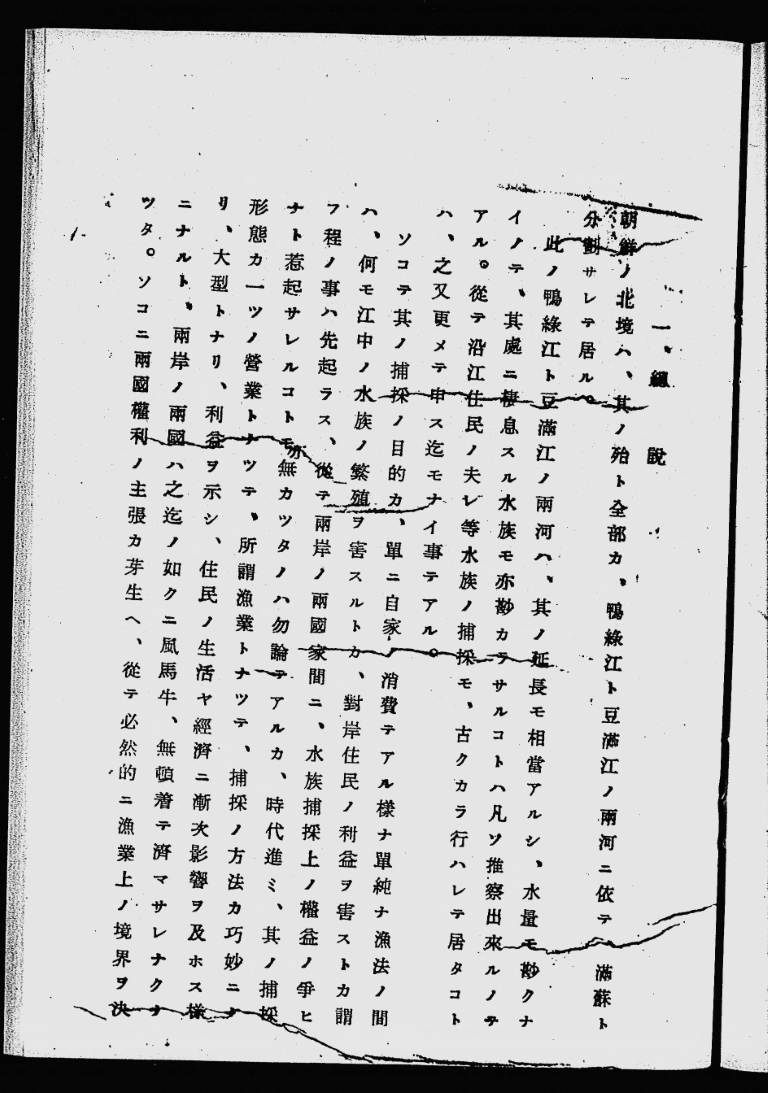 一、總說
朝鮮ノ北境ハ、其ノ殆ト全部カ、鴨綠江ト豆滿江ノ兩河ニ依テ、滿蘇ト
分劃サレテ居ル。
此ノ鴨綠江ト豆滿江ノ兩河ハ、其ノ延長モ相當アルシ、水量モ尠クナ
イノテ、其處ニ棲息スル水族モ亦尠カラサルコトハ凡ソ推察出來ルノテ
アル。從テ沿江住民ノ夫レ等水族ノ捕採モ、古クカラ行ハレテ居タコト
ハ、之又更メテ申ス迄モナイ事テアル。
ソコテ其ノ捕採ノ目的カ、單ニ自家ノ消費テアル樣ナ單純ナ漁法ノ間
ハ、何モ江中ノ水族ノ繁殖ヲ害スルトカ、對岸住民ノ利益ヲ害ストカ謂
フ程ノ事ハ先起ラス、從テ兩岸ノ兩國家間ニ、水族捕採上ノ權益ノ爭ヒ
ナト惹起サレルコトモ亦無カツタノハ勿論テアルカ、時代進ミ、其ノ捕採
形態カ一ツノ營業トナツテ、所謂漁業トナツテ、捕採ノ方法カ巧妙ニナ
リ、大型トナリ、利益ヲ示シ、住民ノ生活ヤ經濟ニ漸次影響ヲ及ホス樣
ニナルト、兩岸ノ兩國ハ之迄ノ如クニ風馬牛、無頓着テ濟マサレナクナ
ツタ。ソコニ兩國權利ノ主張カ芽生ヘ、從テ必然的ニ漁業上ノ境界ヲ決